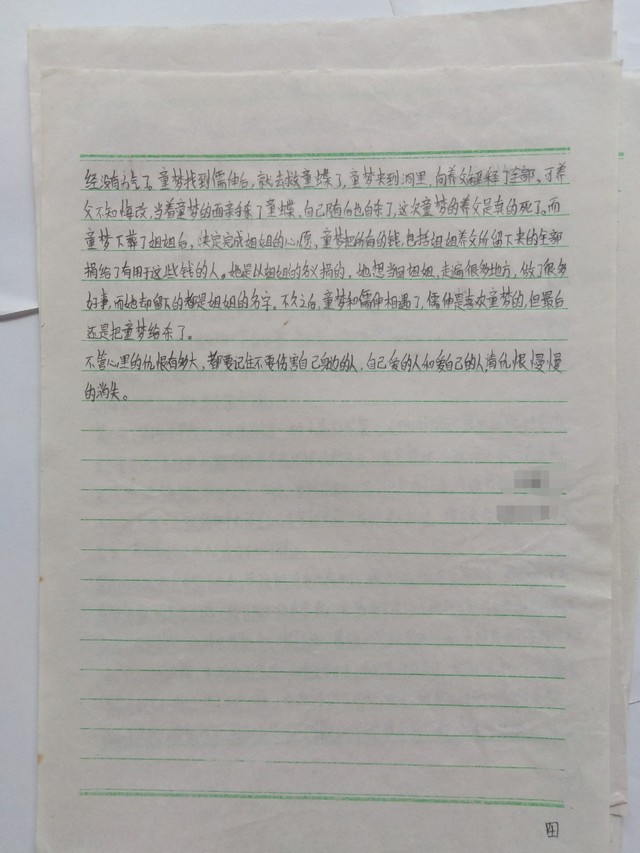 经没有力气了。童梦找到儒仲后，就去救童蝶了，童梦来到洞里，向养父解释了全部。可养
父不知悔改，当着童梦的面亲手杀了童蝶，自己随后也自杀了，这次童梦的养父是真的死了。而
童梦下葬了姐姐后，决定完成姐姐的心愿，童梦把所有的钱，包括姐姐养父所留下来的全部
捐给了有用于这些钱的人。她是以姐姐的名义捐的，她想当回姐姐，走遍很多地方，做了很多
好事，而她却留下的都是姐姐的名字。不久之后，童梦和儒仲相遇了，儒仲是喜欢童梦的，但最后
还是把童梦给杀了。
不管心里的仇恨有多大，都要记住不要伤害自己身边的人，自己爱的人和爱自己的人，请仇恨慢慢
的消失。
四